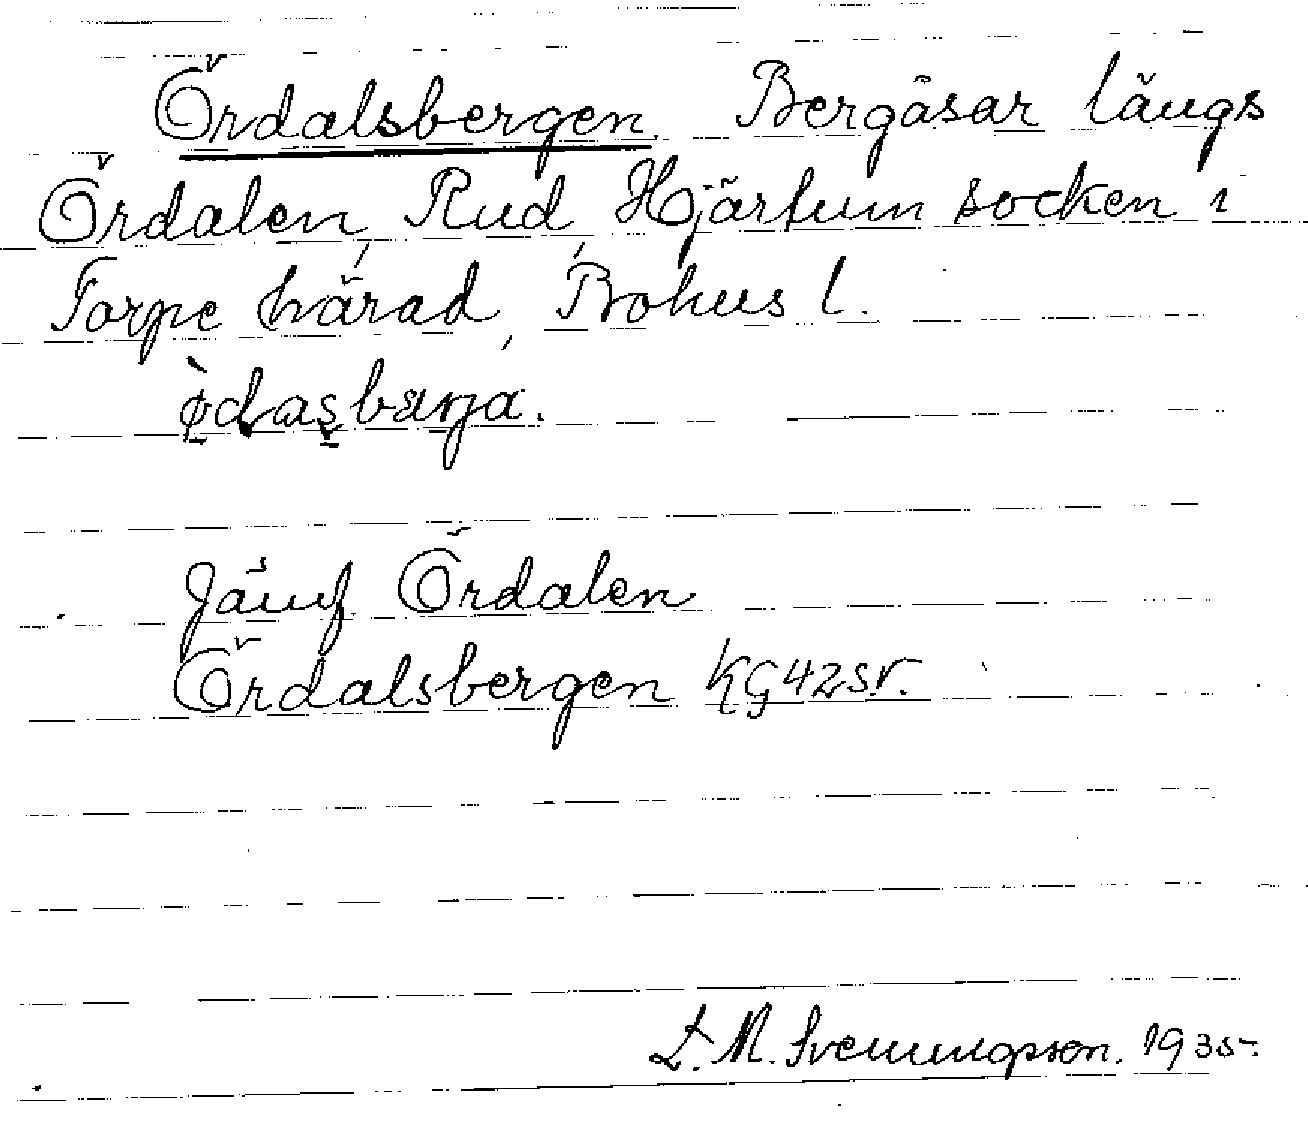 Ördalsbergen. Bergåsar längs
Ördalen, Rud, Hjärtum socken i
Torpe härad, Bohus l.
Jämf Ördalen
Ördalsbergen KG42SV.
L. M. Svenungsson. 1935.